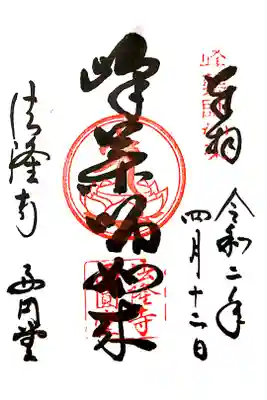 奉拝
令和二年
四月十二日
峰薬師如来
法隆寺
西円堂